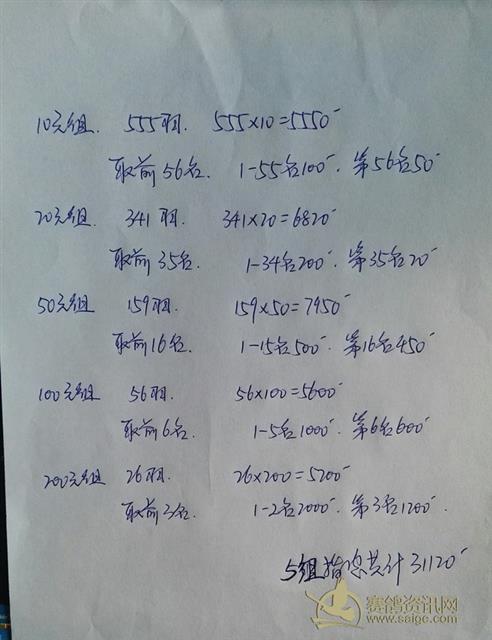 10元组. 555羽. 555×10=5550-
取前56名. 1-55名100-. 第56名50-
20元组. 341羽. 341×20=6820-
取前35名. 1-34名200-. 第35名20-
50元组 159羽. 159×50=7950-
取前16名. 1-15名500-. 第16名450-
100元组 56羽. 56×100=5600-
取前6名. 1-5名1000-. 第6名600-
200元组 26羽. 26×200=5200-
取前3名. 1-2名2000-. 第3名1200-
5组指定共计31120-
赛鸽资讯网
www.saige.com